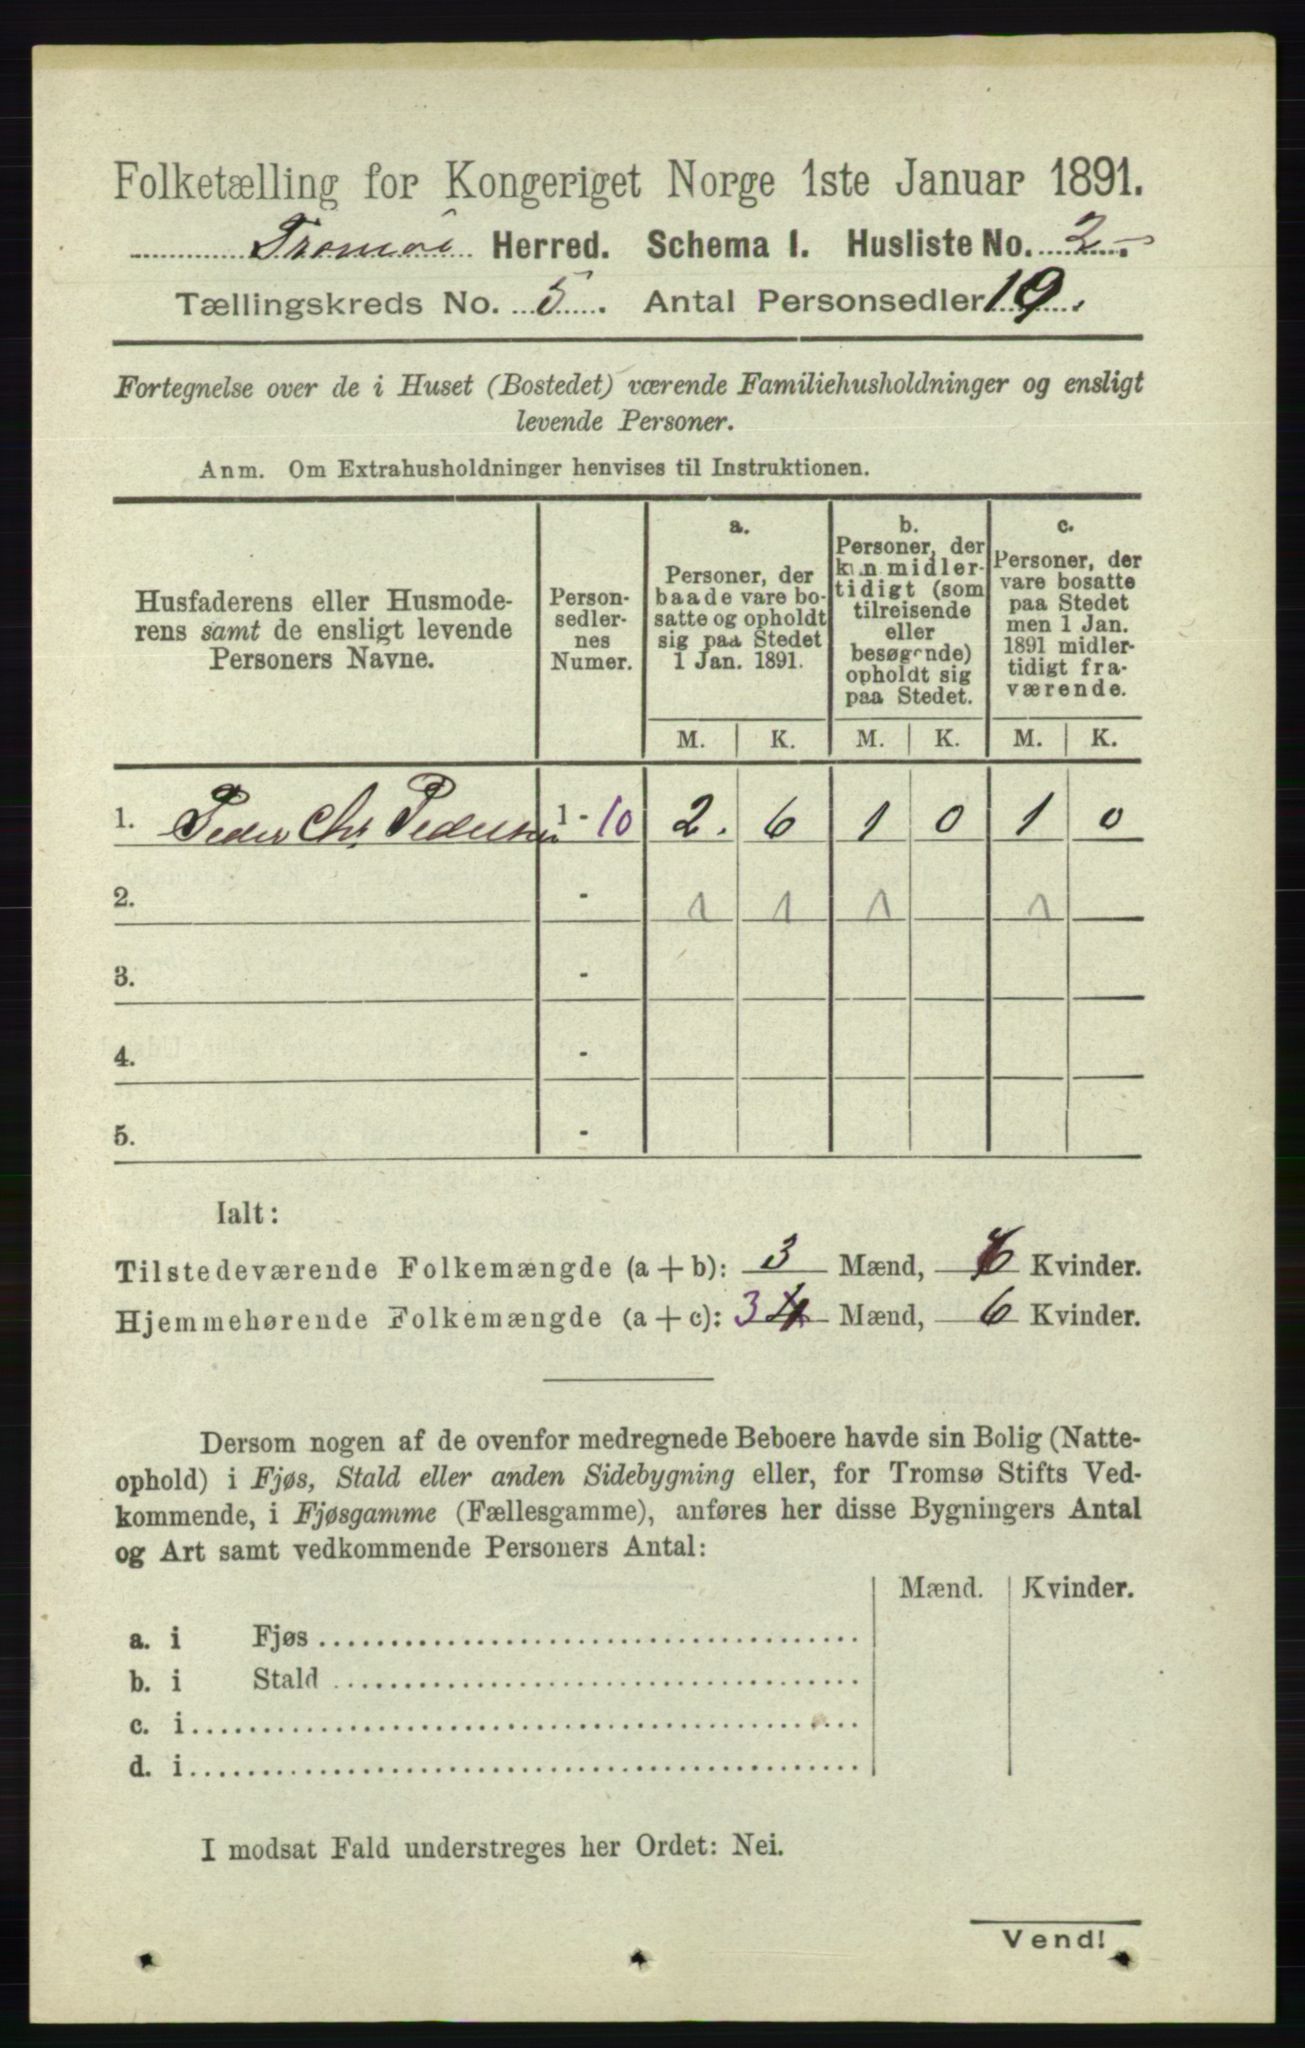 Folketælling for Kongeriget Norge 1ste Januar 1891.
Tromøi Herred. Schema I. Husliste No. 2.
Tællingskreds No. 5. Antal Personsedler 10.
Fortegnelse over de i Huset (Bostedet) værende Familiehusholdninger og ensligt
levende Personer.
Anm. Om Extrahusholdninger henvises til Instruktionen.
Husfaderens eller Husmode-
rens samt de ensligt levende
Personers Navne.
Person-
sedler-
nes
Numer.
a.
Personer, der
baade vare bo-
satte og opholdt
sig paa Stedet
1 Jan. 1891.
b.
Personer, der
kun midler-
tidigt (som
tilreisende
eller
besøgende)
opholdt sig
paa Stedet.
c.
Personer, der
vare bosatte
paa Stedet
men 1 Jan.
1891 midler-
tidigt fra-
værende.
M. K. M. K. M. K.
1. Peder Chr. Pedersen 1 - 10 2. 6 1 0 1 0
2. - 1 1 1 1
3. -
4. -
5. -
Ialt:
Tilstedeværende Folkemængde (a + b): 3 Mænd, 6 Kvinder.
Hjemmehørende Folkemængde (a + c): 3 4 Mænd, 6 Kvinder.
Dersom nogen af de ovenfor medregnede Beboere havde sin Bolig (Natte-
ophold) i Fjøs, Stald eller anden Sidebygning eller, for Tromsø Stifts Ved-
kommende, i Fjøsgamme (Fællesgamme), anføres her disse Bygningers Antal
og Art samt vedkommende Personers Antal:
Mænd. Kvinder.
a. i Fjøs
b. i Stald
c. i
d. i
I modsat Fald understreges her Ordet: Nei.
Vend!